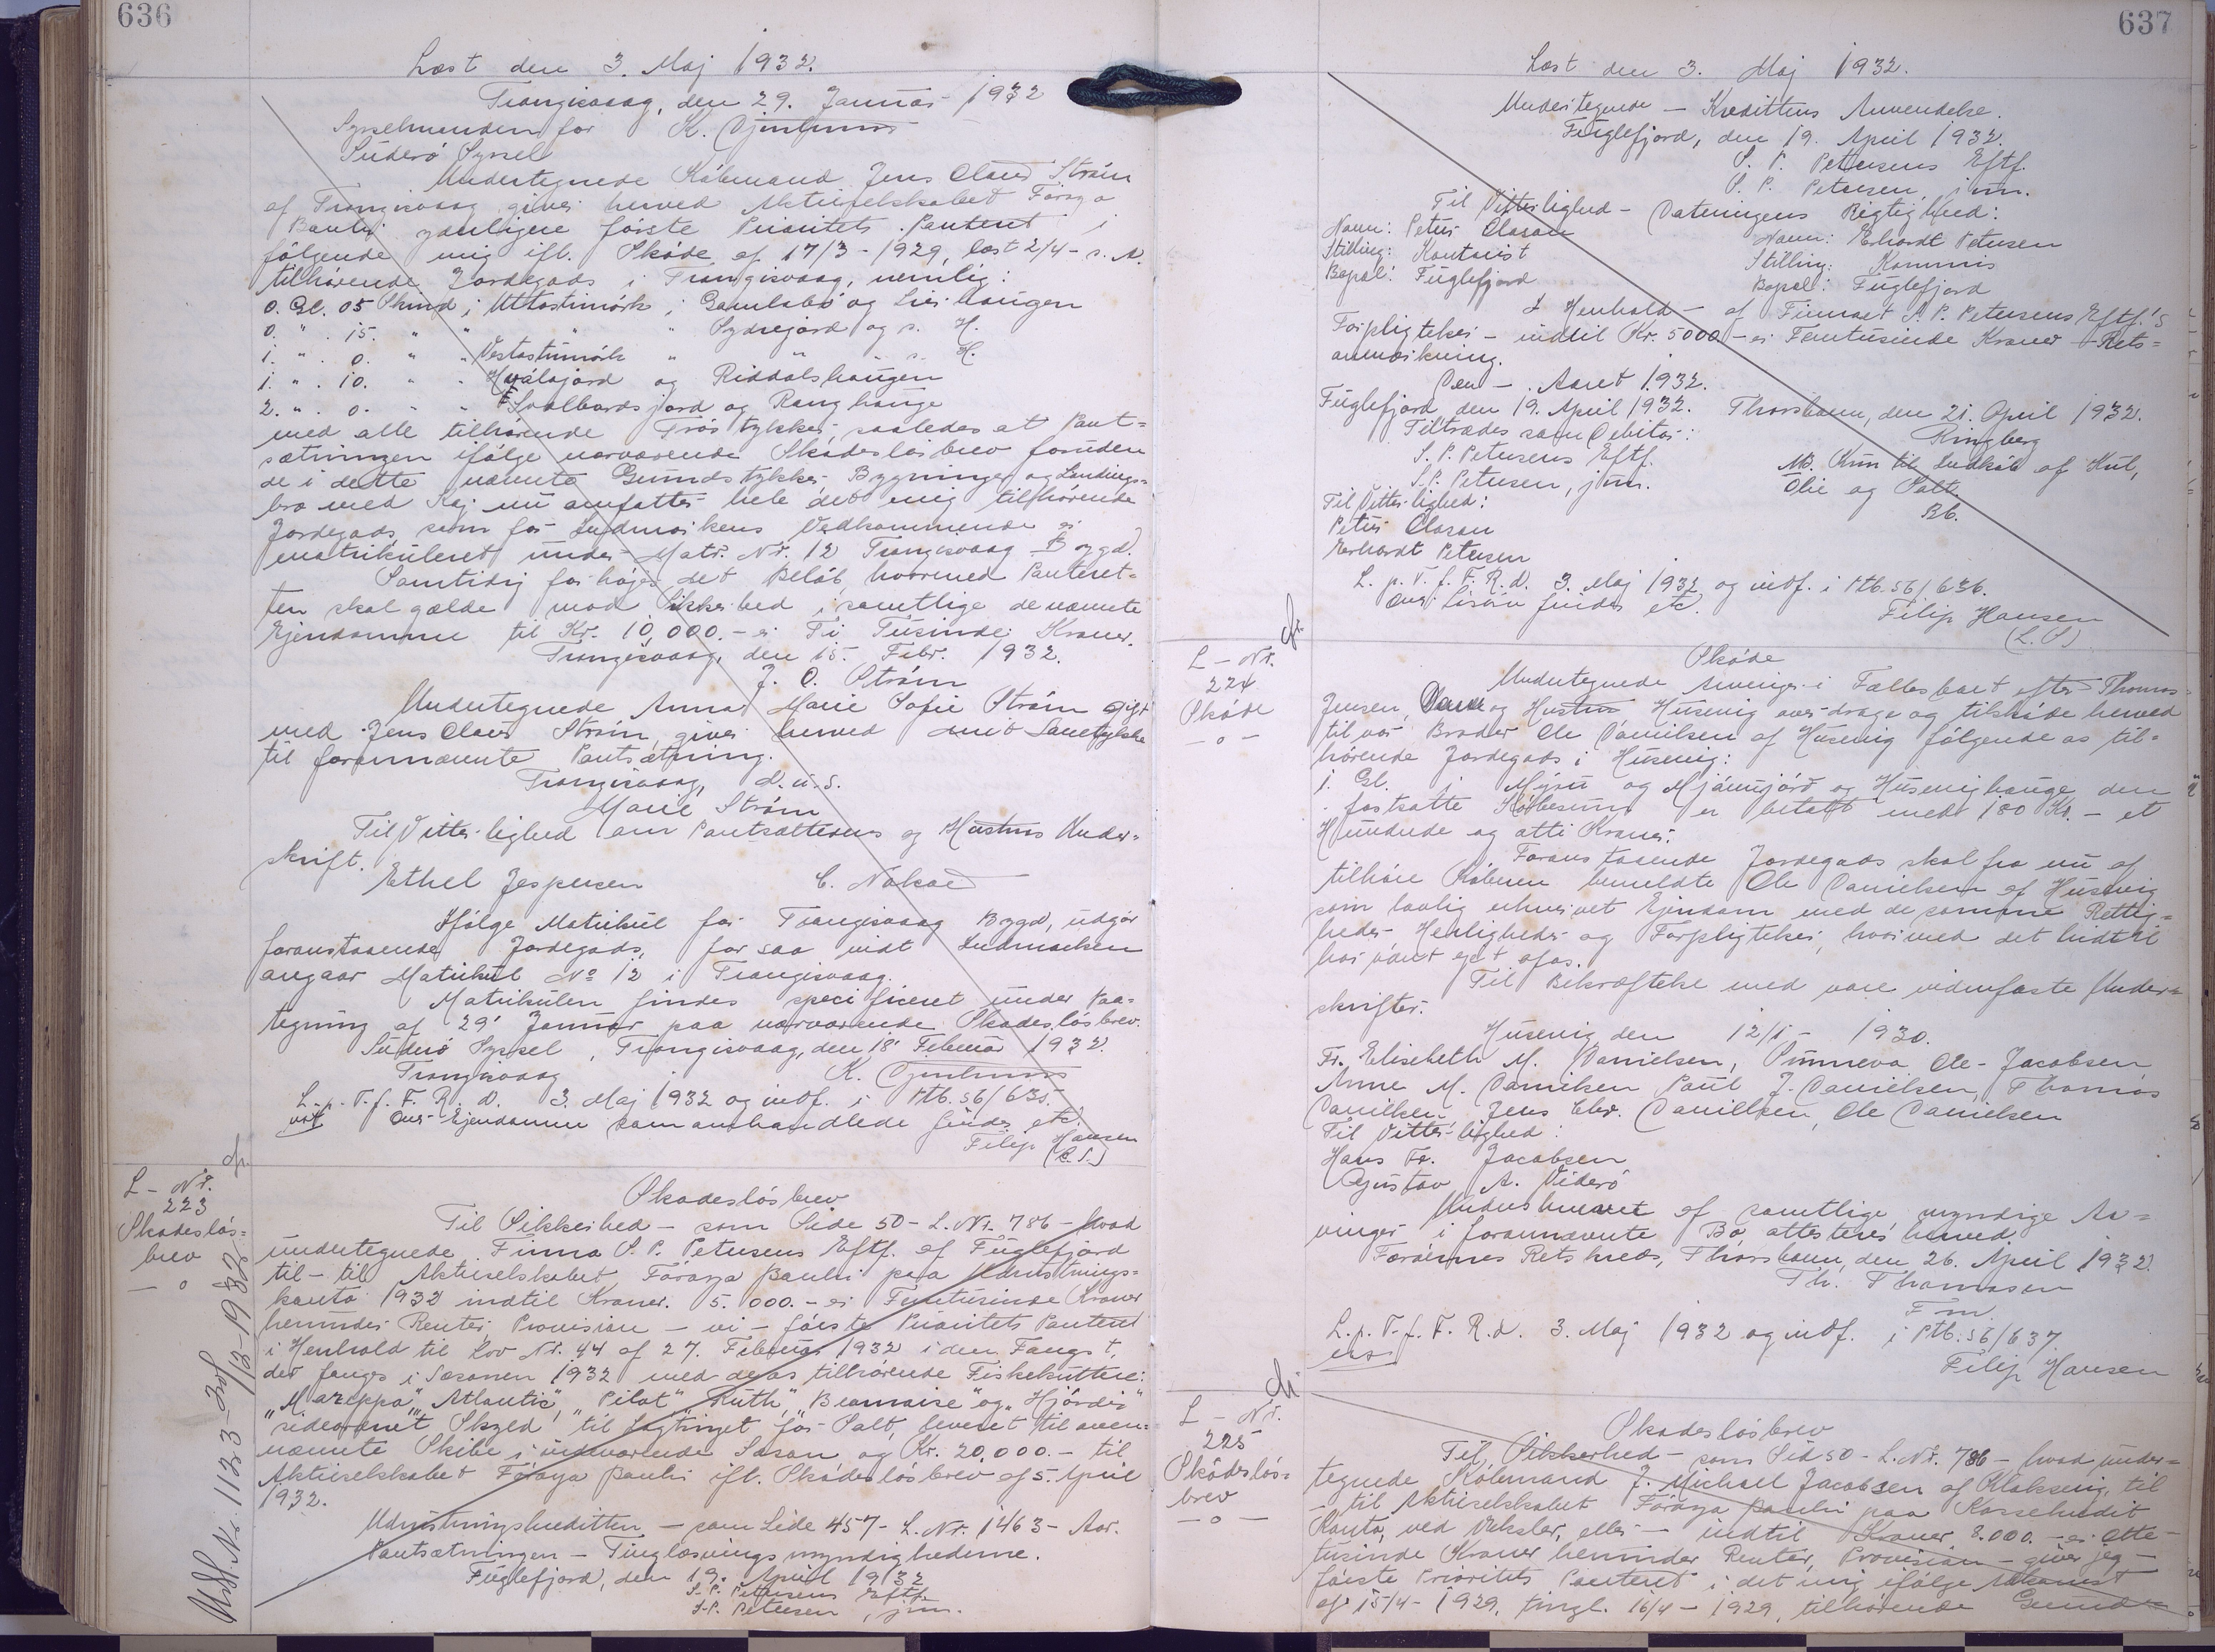 636
Læst den 3. Maj 1932.
Trangisvaag, den 29. Januar 1932
Sysselmanden for K. Djurhuus
Suderø Syssel
Undertegnede Købmand Jens Olaus Strøm
af Trangisvaag giver herved Aktieselskabet Föroya
Banki yderligere første Prioritets Panteret i
følgende mig ifl. Skøde af 17/3 - 1929, læst 2/4 - s. A.
tilhørende Jordegods i Trangisvaag, nemlig:
0. Gl. 05 Skind i Uttastimørk i Gamlabø og Lis haugen
0. " . 15. " " " " Sydrejord og s. H.
1. " . 0. " " Vestastumørk " " " s. H.
1. " . 10. " " Hválsjord og Riddalshaugen
2. " . 0. " " Svalbardsjord og Ranghauge
med alle tilhørende Træstykker, saaledes at Pant-
sætningen ifølge nærværende Skadesløsbrev foruden
de i dette nævnte Grundstykker, Bygninger og Landings-
bro med Kaj nu omfatter hele det mig tilhørende
Jordegods, som for Indmarkens Vedkommende er
matrikuleret under Matr. Nr. 12 Trangisvaag Bygd.
Samtidig forhøjes det Beløb, hvormed Panteret-
ten skal gælde mod Sikkerhed i samtlige de nævnte
Ejendomme til Kr. 10,000.- er Ti Tusinde Kroner.
Trangisvaag, den 15. Febr. 1932.
J. O. Strøm
Undertegnede Anna Marie Sofie Strøm gift
med Jens Olaus Strøm, giver herved mit Samtykke
til forannævnte Pantsætning.
Trangisvaag, d.u.s.
Marie Strøm
Til Vitterlighed om Pantsætterens og Hustrus Under-
skrift.
Ethel Jespersen C. Nolsøe
Ifølge Matrikul for Trangisvaag Bygd, udgør
foranstaaende Jordegods, for saa vidt Indmarken
angaar Matrikul No 12 i Trangisvaag.
Matrikulen findes specificeret under Paa-
tegning af 29' Januar paa nærværende Skadesløsbrev.
Suderø Syssel, Trangisvaag, den 18' Februar 1932.
Trangisvaag K. Djurhuus
L. p. T. f. F. R. d. 3. Maj 1932 og indf. i Ptb. 56/635.
Over Ejendomme som omhandlede findes etc.
Filip Hansen
(L.S.)
L - Nr.
223
Skadesløs-
brev
- o
Udsl. Nr. 1123
Skadesløsbrev
Til Sikkerhed - som Side 50 - L. Nr. 786 - hvad
undertegnede Firma S. P. Petersens Eftf. af Fuglefjord
til - til Aktieselskabet Föroya Banki paa Udrustnings-
konto 1932 indtil Kroner 5.000.- er Femtusinde Kroner
herunder Renter, Provision - vi - første Prioritets Panteret
i Henhold til Lov Nr. 44 af 27. Februar 1932 i den Fangst,
der fanges i Sæsonen 1932 med deres tilhørende Fiskekuttere:
"Mazeppa", "Atlantic", "Pilot", "Ruth", "Bearnaise" og "Hjørdis"
sideordnet Skyld til Lagtinget for Salt, leveret til oven-
nævnte Skibe i indeværende Sæson og Kr. 20,000.- til
Aktieselskabet Föroya Banki ifl. Skadesløsbrev af 5. April
1932.
Udrustningskreditten - som Side 457 - L. Nr. 1463 - Aar.
Pantsætningen - Tinglæsningsmyndighederne.
Fuglefjord, den 19. April 1932
S. P. Petersens Eftf.
S. P. Petersen, jun.
637
Læst den 3. Maj 1932.
Undertegnede - Kredittens Anvendelse.
Fuglefjord, den 19. April 1932.
S. P. Petersens Eftf.
S. P. Petersen, jun.
Til Vitterlighed - Dateringens Rigtighed:
Navn: Petur Olason Navn: Erhardt Petersen
Stilling: Kontorist Stilling: Kommis
Bopæl: Fuglefjord Bopæl: Fuglefjord
I Henhold - af Firmaet S. P. Petersens Eftf.'s
Forpligtelser - indtil Kr. 5000 - er Femtusinde Kroner - Rets-
anmærkning.
Den - . Aaret 1932.
Fuglefjord, den 19. April 1932. Thorshavn, den 21. April 1932.
Tiltrædes som Debitor: Ringberg
S. P. Petersens Eftf. Nb. Kun til Indkøb af Kul,
S. P. Petersen, jun. Olie og Salt.
Til Vitterlighed: Rb.
Petur Olason
Erhardt Petersen
L. p. T. f. F. R. d. 3. Maj 1932 og indf. i Ptb. 56/636.
findes etc.
Filip Hansen
(L.S)
L - Nr.
224
Skøde
- o -
Skøde
Undertegnede Arvinger i Fællesboet efter Thomas
Jensen, og Hustru Husevig overdrage og tilskøde herved
til vor Broder Ole Danielsen af Husevig følgende os til-
hørende Jordegods i Husevig:
1. Gl. i Mýru og Mjánujørd og Husevighauge den
fastsatte Købesum er betalt med 180 Kr. - et
Hundrede og atti Kroner.
Foranstaaende Jordegods skal fra nu af
tilhøre Køberen bemeldte Ole Danielsen af Husevig
som lovlig erhvervet Ejendom med de samme Rettig-
heder Herligheder og Forpligtelser, hvormed det hidtil
har været ejet af os.
Til Bekræftelse med vore vidnefaste Under-
skrifter.
Husevig den 12/1 - 1930.
Fr. Elisebeth M. Danielsen, Sunneva Ole-Jacobsen
Anne M. Danielsen Paul J. Danielsen, Thomas
Danielsen Jens Chr. Danielsen, Ole Danielsen
Til Vitterlighed:
Hans Fr. Jacobsen
Agustav A. Viderø
Underskrevet af samtlige myndige Ar-
vinger i forannævnte Bo, attesteres herved.
Færøernes Retskreds, Thorshavn, den 26. April 1932.
Th. Thomasen
Fm
L. p. T. f. F. R. d. 3. Maj 1932 og indf. i Ptb. 56/637
Filip Hansen
L - Nr.
225
Skadesløs-
brev
- o -
Skadesløsbrev
Til Sikkerhed - som Sid 50 - L. Nr. 786 - hvad under-
tegnede Købmand J. Michael Jacobsen af Klaksvig, til
- til Aktieselskabet Föroya Banki paa Kassekredit
Konto, ved Veksler, eller - indtil Kroner 8.000.- er Otte
tusinde Kroner herunder Renter, Provision - giver jeg -
første Prioritets Panteret i det mig ifølge Adkomst
af 15/4 - 1929, tingl. 16/4 - 1929, tilhørende Grund-